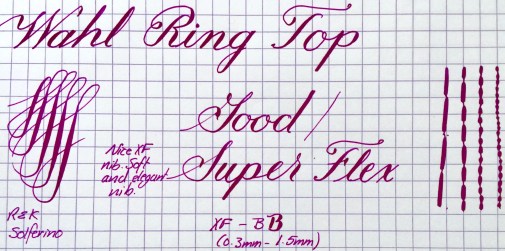 Wahl Ring Top
Good /
Super Flex
Nice XF
nib. Soft
and elegant
nib.
R&K
Solferino
XF - BB
(0.3mm - 1.5mm)